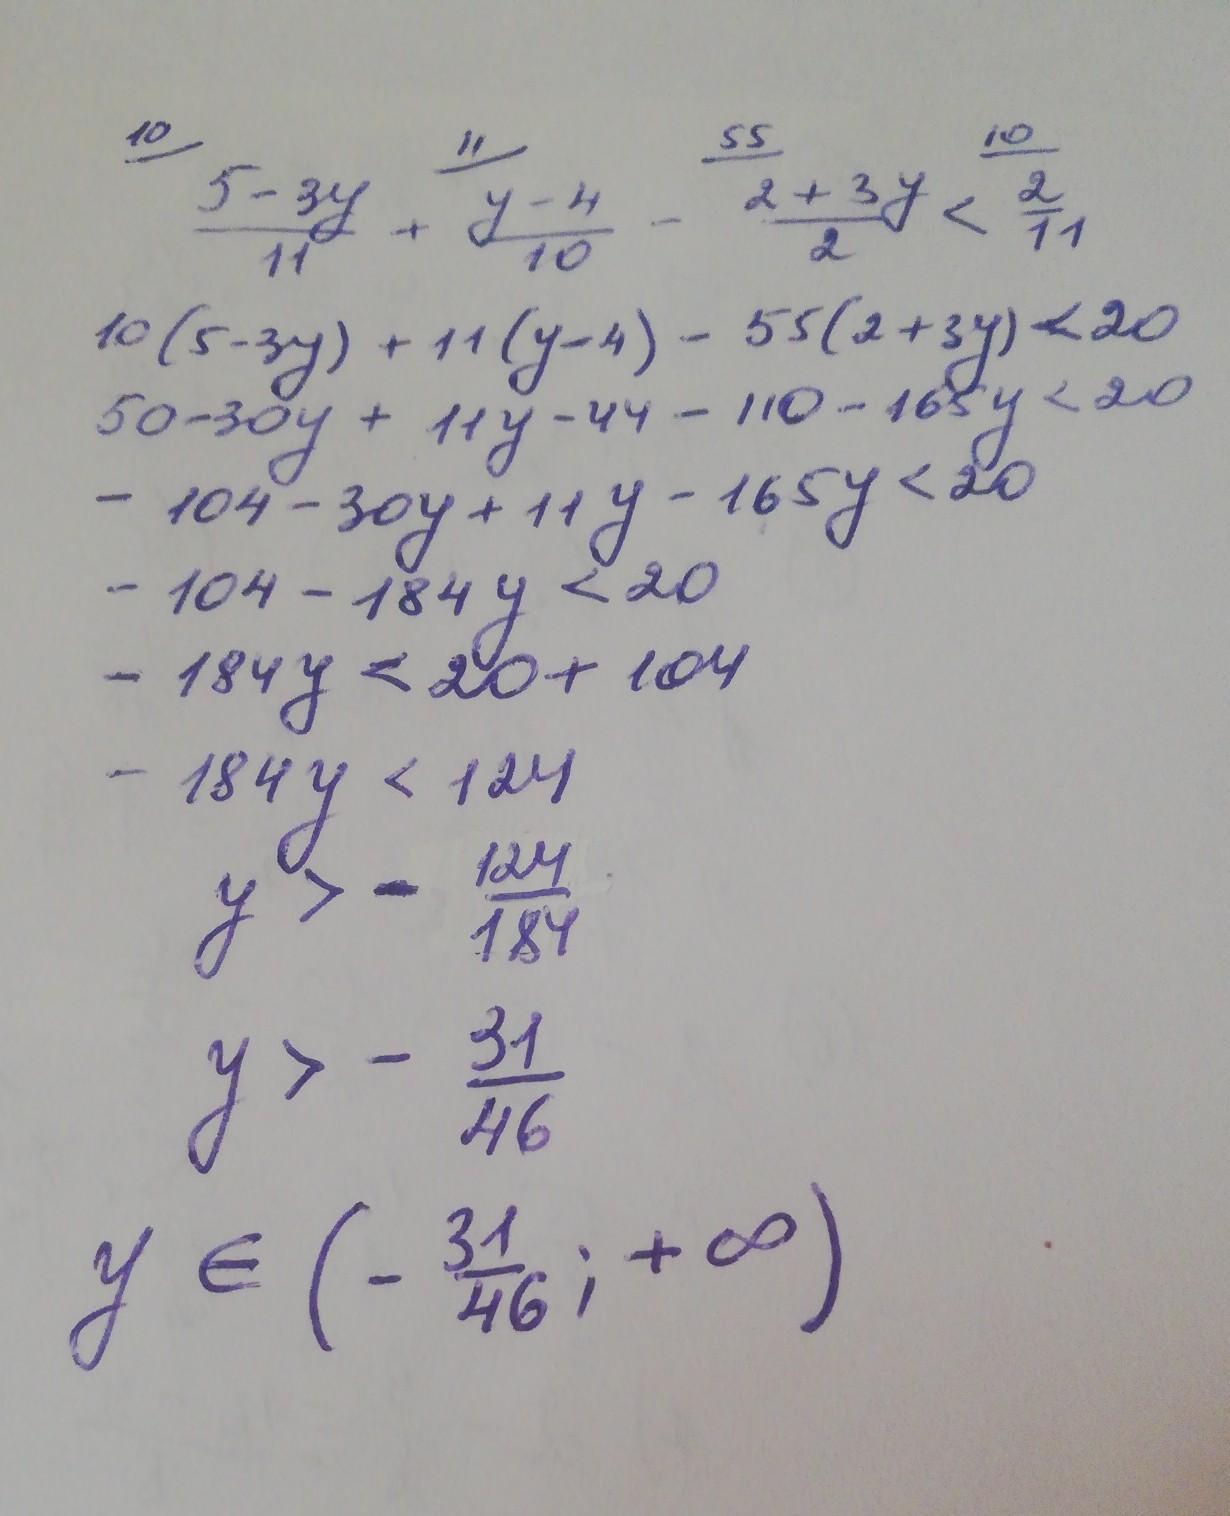 10 11 55 10
(5-3y)/11 + (y-4)/10 - (2+3y)/2 < 2/11
10(5-3y) + 11(y-4) - 55(2+3y) < 20
50-30y + 11y-44 - 110 - 165y < 20
- 104 - 30y + 11y - 165y < 20
- 104 - 184y < 20
- 184y < 20 + 104
- 184y < 124
y > - 124/184
y > - 31/46
y ∈ (- 31/46 ; + ∞)